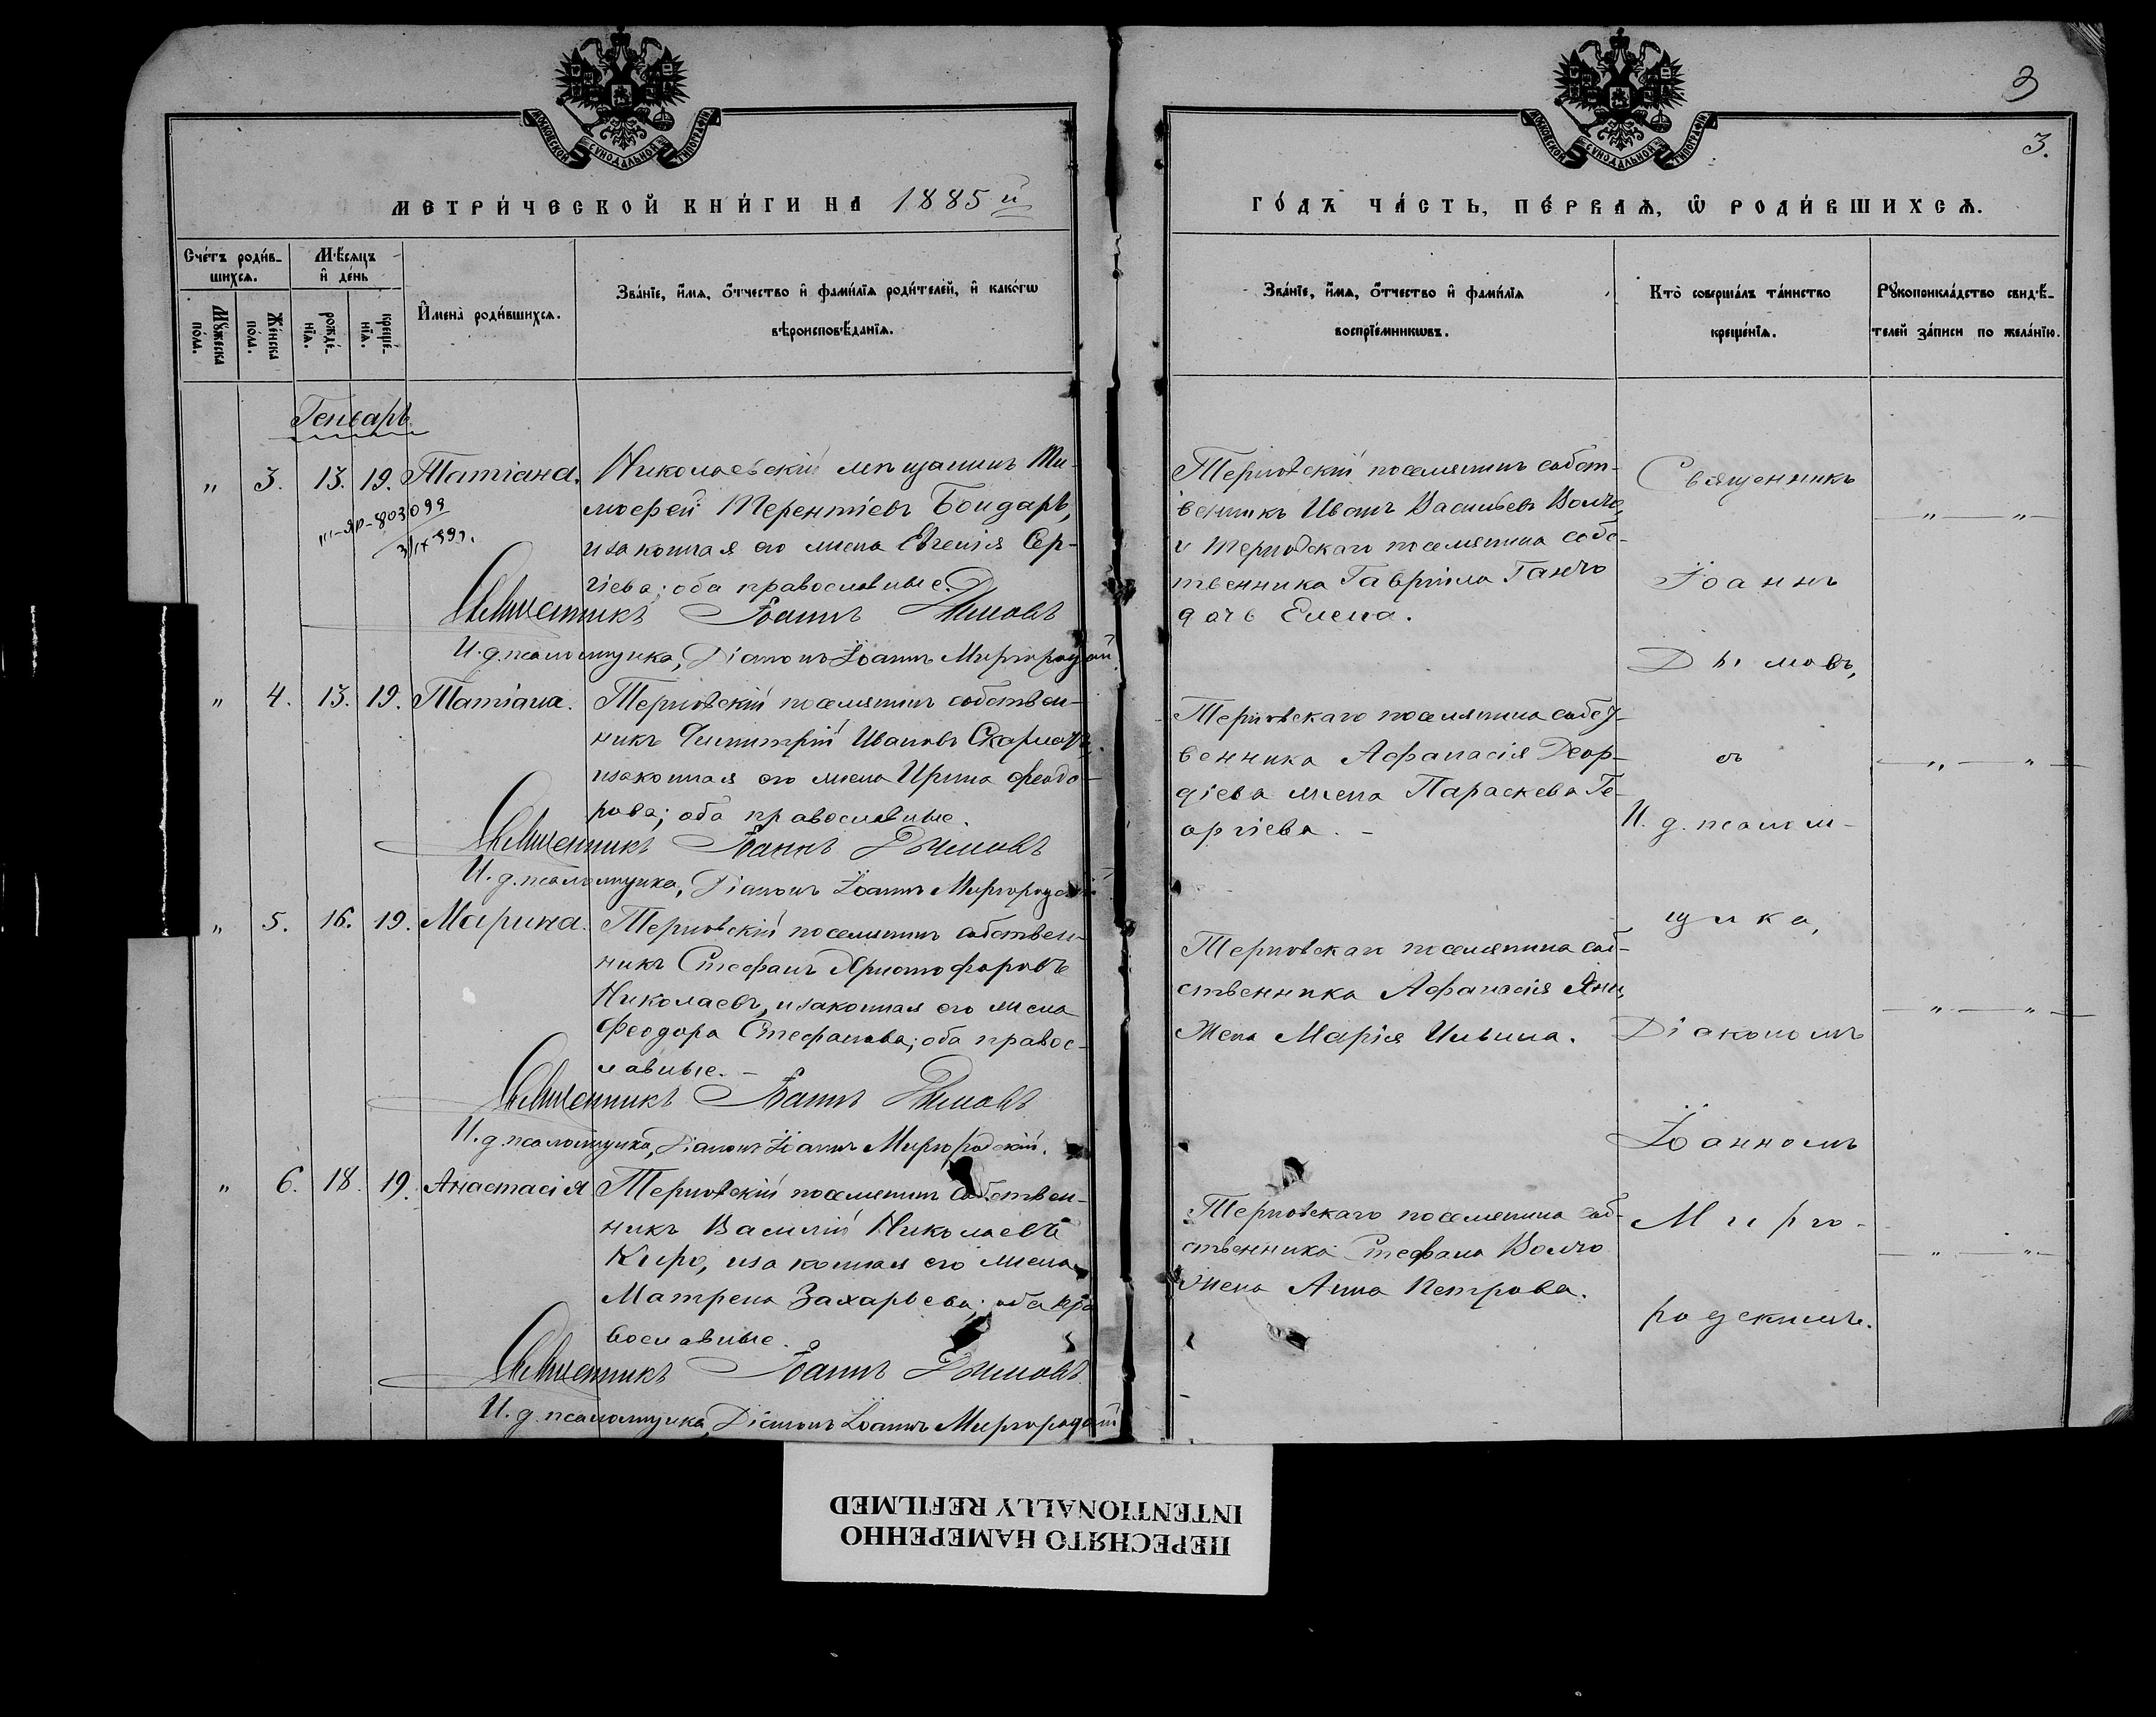 МОСКОВСКОЙ СѴНОДАЛЬНОЙ ТИПОГРАФІИ
МЕТРИ́ЧЕСКОЙ КНИ́ГИ НА 1885й
Сче́тъ роди́в-
шихсѧ.
Мѣ́сяцъ
и҆ де́нь
И҆мена̀ роди́вшихсѧ.
Зва́нїе, и҆́мѧ, ѻ҆́тчество и҆ фами́лїѧ роди́телей, и҆ како́гѡ
вѣроисповѣ́данїѧ.
Мꙋ́жеска
по́ла.
Же́нска
по́ла.
рожде́-
нїѧ.
креще́-
нїѧ.
Генварь
" 3. 13. 19. Татіана.
III-ЯР-803099
Николаевскій мѣщанинъ Ти-
мофей Терентіевъ Бондарь,
и законная его жена Евгенія Сер-
гіева; оба православные.
Священникъ Іоаннъ Дымовъ
И. д. псаломщика, Діаконъ Іоаннъ Миргородскій
" 4. 13. 19. Татіана.
Терновскій поселянинъ собствен-
никъ Димитрій Ивановъ
и законная его жена Ирина Феодо-
рова; оба православные.
Священникъ Іоаннъ Дымовъ
И. д. псаломщика, Діаконъ Іоаннъ Миргородскій
" 5. 16. 19. Марина.
Терновскій поселянинъ собствен-
никъ Стефанъ Христофоровъ
Николаевъ, и законная его жена
Феодора Стефанова; оба правос-
лавные. -
Священникъ Іоаннъ Дымовъ
И. д. псаломщика, Діаконъ Іоаннъ Миргородскій.
" 6. 18. 19. Анастасія
Терновскій поселянинъ собствен-
никъ Василій Николаевъ
Киро, и законная его жена
Матрена Захарьева; оба пра
вославные.
Священникъ Іоаннъ Дымовъ
И. д. псаломщика, Діаконъ Іоаннъ Миргородскій
3
3.
МОСКОВСКОЙ СѴНОДАЛЬНОЙ ТИПОГРАФІИ
ГО́ДЪ ЧА́СТЬ, ПЕ́РВАѦ, Ѡ҆ РОДИ́ВШИХСѦ.
Зва́нїе, и҆́мѧ, ѻ҆́тчество и҆ фами́лїѧ
воспрїе́мникѡвъ.
Кто̀ соверша́лъ та́инство
креще́нїѧ.
Рꙋкоприкла́дство свидѣ́-
телей за́писи по жела́нїю.
Терновскій поселянинъ собст-
венникъ Иванъ Васильевъ Волчо,
и Терновскаго поселянина собс-
твенника Гавріила Ганчо
дочь Елена.
Терновскаго поселянина собст-
венника Афанасія Геор-
гіева жена Параскева Ге-
оргіева. -
Терновскаго поселянина соб-
ственника Афанасія
жена Марія Ильина.
Терновскаго поселянина соб-
ственника Стефана Волчо
жена Анна Петрова.
Священникъ
Іоаннъ
Дымовъ,
съ
И. д. псалом-
щика,
Діакономъ
Іоанномъ
Мирго-
родскимъ.
" "
" "
" "
" "
ПЕРЕСНЯТО НАМЕРЕННО
INTENTIONALLY REFILMED